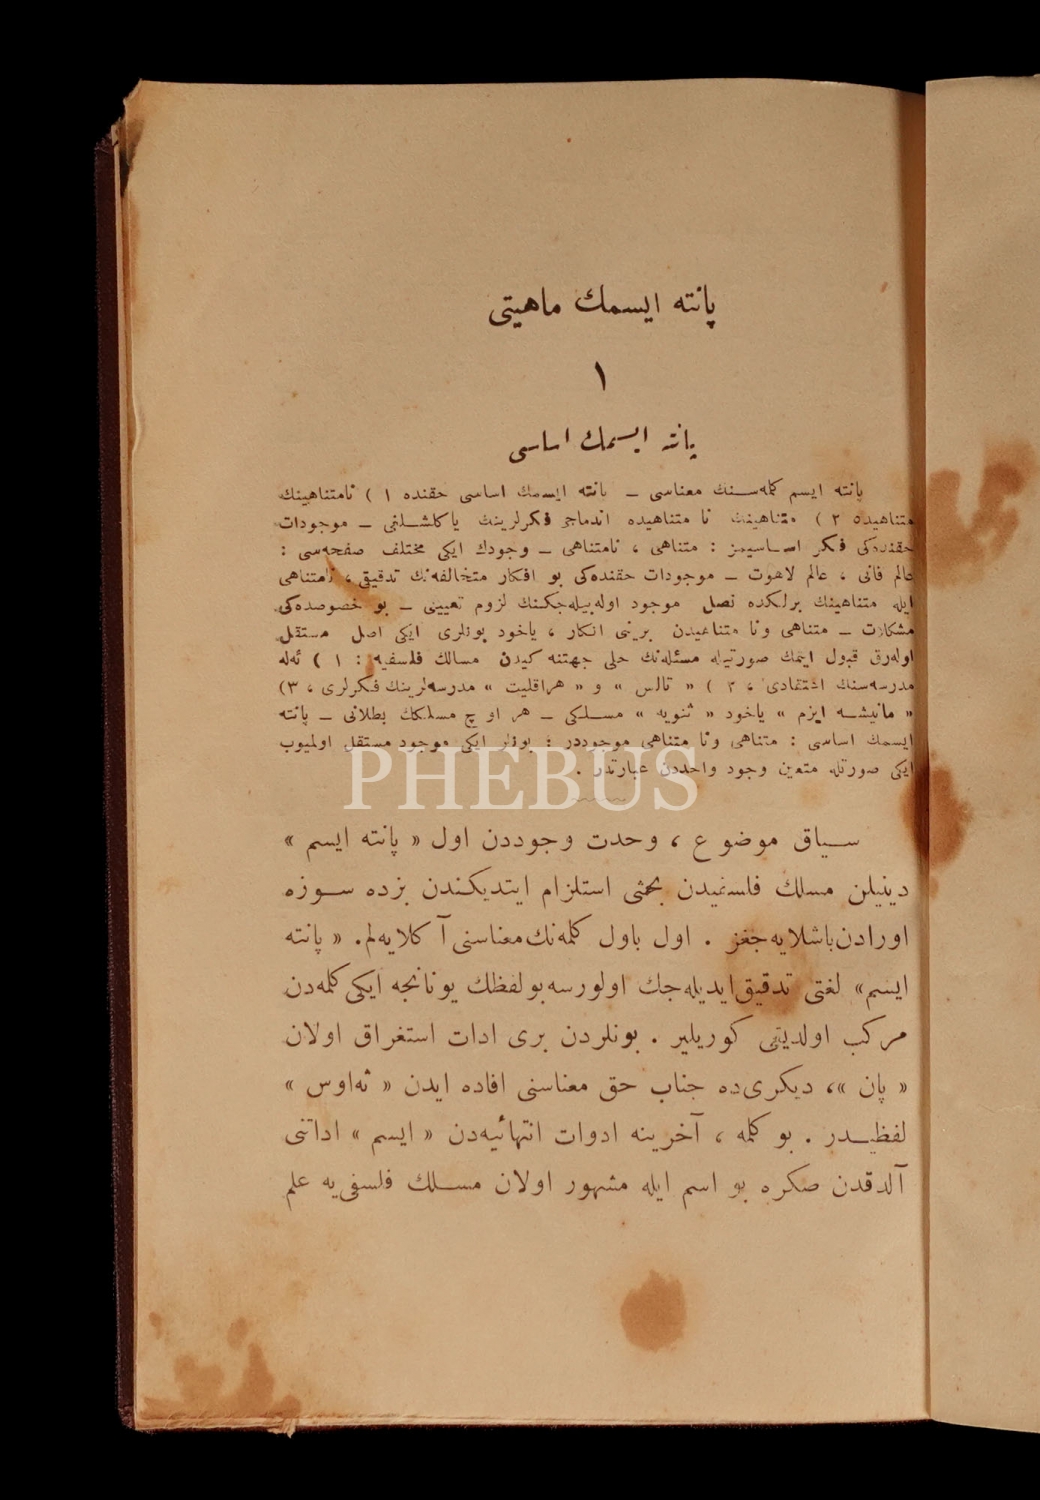 پانته ايسمك ماهيتى
١
پانته ايسمك اساسى
پانته ايسم كلمه‌سنك معناسى ـ پانته ايسمك اساسى حقنده ١ ) نامتناهينك
متناهيده ٢ ) متناهينك نا متناهيده اندماجى فكرلرينك ياكلشلغى ـ موجودات
حقنده‌كى فكر اساسيمز : متناهى ، نامتناهى ـ وجودك ايكى مختلف صفحه‌سى :
عالم فانى ، عالم لاهوت ـ موجودات حقنده‌كى بو افكار متخالفه‌نك تدقيقى ، نامتناهى
ايله متناهينك برلكده نصل موجود اوله‌بيله‌جكنك لزوم تعيينى ـ بو خصوصده‌كى
مشكلات ـ متناهى ونا متناهيدن برينى انكار ، ياخود بونلرى ايكى اصل مستقل
اوله‌رق قبول ايتمك صورتيله مسئله‌نك حلى جهتنه كيدن مسالك فلسفيه : ١ ) ئه‌له
مدرسه‌سنك اعتقادى ، ٢ ) « تالس » و « هراقليت » مدرسه‌لرينك فكرلرى ، ٣)
« مانيشه ايزم » ياخود « ثنويه » مسلكى ـ هر او چ مسلكك بطلانى ـ پانته
ايسمك اساسى : متناهى ونا متناهى موجوددر ؛ بونلر ايكى موجود مستقل اولميوب
ايكى صورتله متعين وجود واحددن عبارتدر .
PHEBUS
سياق موضوع ، وحدت وجوددن اول « پانته ايسم »
دينيلن مسلك فلسفيدن بحثى استلزام ايتديكندن بزده سوزه
اورادن‌باشلايه‌جغز . اول باول كلمه‌نك‌معناسنى آكلايه‌لم. « پانته
ايسم» لغتى تدقيق‌ايديله‌جك اولورسه‌بولفظك يونانجه ايكى كلمه‌دن
مركب اولديغى كوريلير . بونلردن برى ادات استغراق اولان
« پان »، ديكرى‌ده جناب حق معناسنى افاده ايدن « ته‌اوس »
لفظيدر . بو كلمه ، آخرينه ادوات انتهائيه‌دن « ايسم » اداتنى
آلدقدن صكره بو اسم ايله مشهور اولان مسلك فلسفى‌يه علم